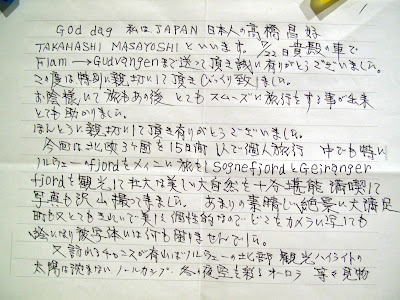 God dag 私はJAPAN 日本人の高橋昌好
TAKAHASHI MASAYOSHI といいます。7/22日貴殿の車で
Flam→Gudvangenまで送って頂き誠に有りがとうございました。
この度は特別に親切にして頂きびっくり致しました。
お陰様にて旅もあの後とてもスムーズに旅行をする事が出来
とても助かりました。
ほんとうに親切にして頂き有りがとうございました。
今回は北欧3ケ国を15日間 1人で個人旅行 中でも特に
ノルウェーのfjordをメインに旅をしSognefjordとGeiranger
fjordを観光して壮大な美しい大自然を十分堪能 満喫して
写真も沢山撮って来ました。あまりの素晴しい絶景に大満足
町もとてもきれいで美しく個性的なので どこをカメラに写しても
絵になり被写体には何も困りませんでした。
又訪れるチャンスが有ればノルウェーの北部 観光ハイライトの
太陽は沈まないノールカップ 冬の夜空を彩るオーロラ 等を見物